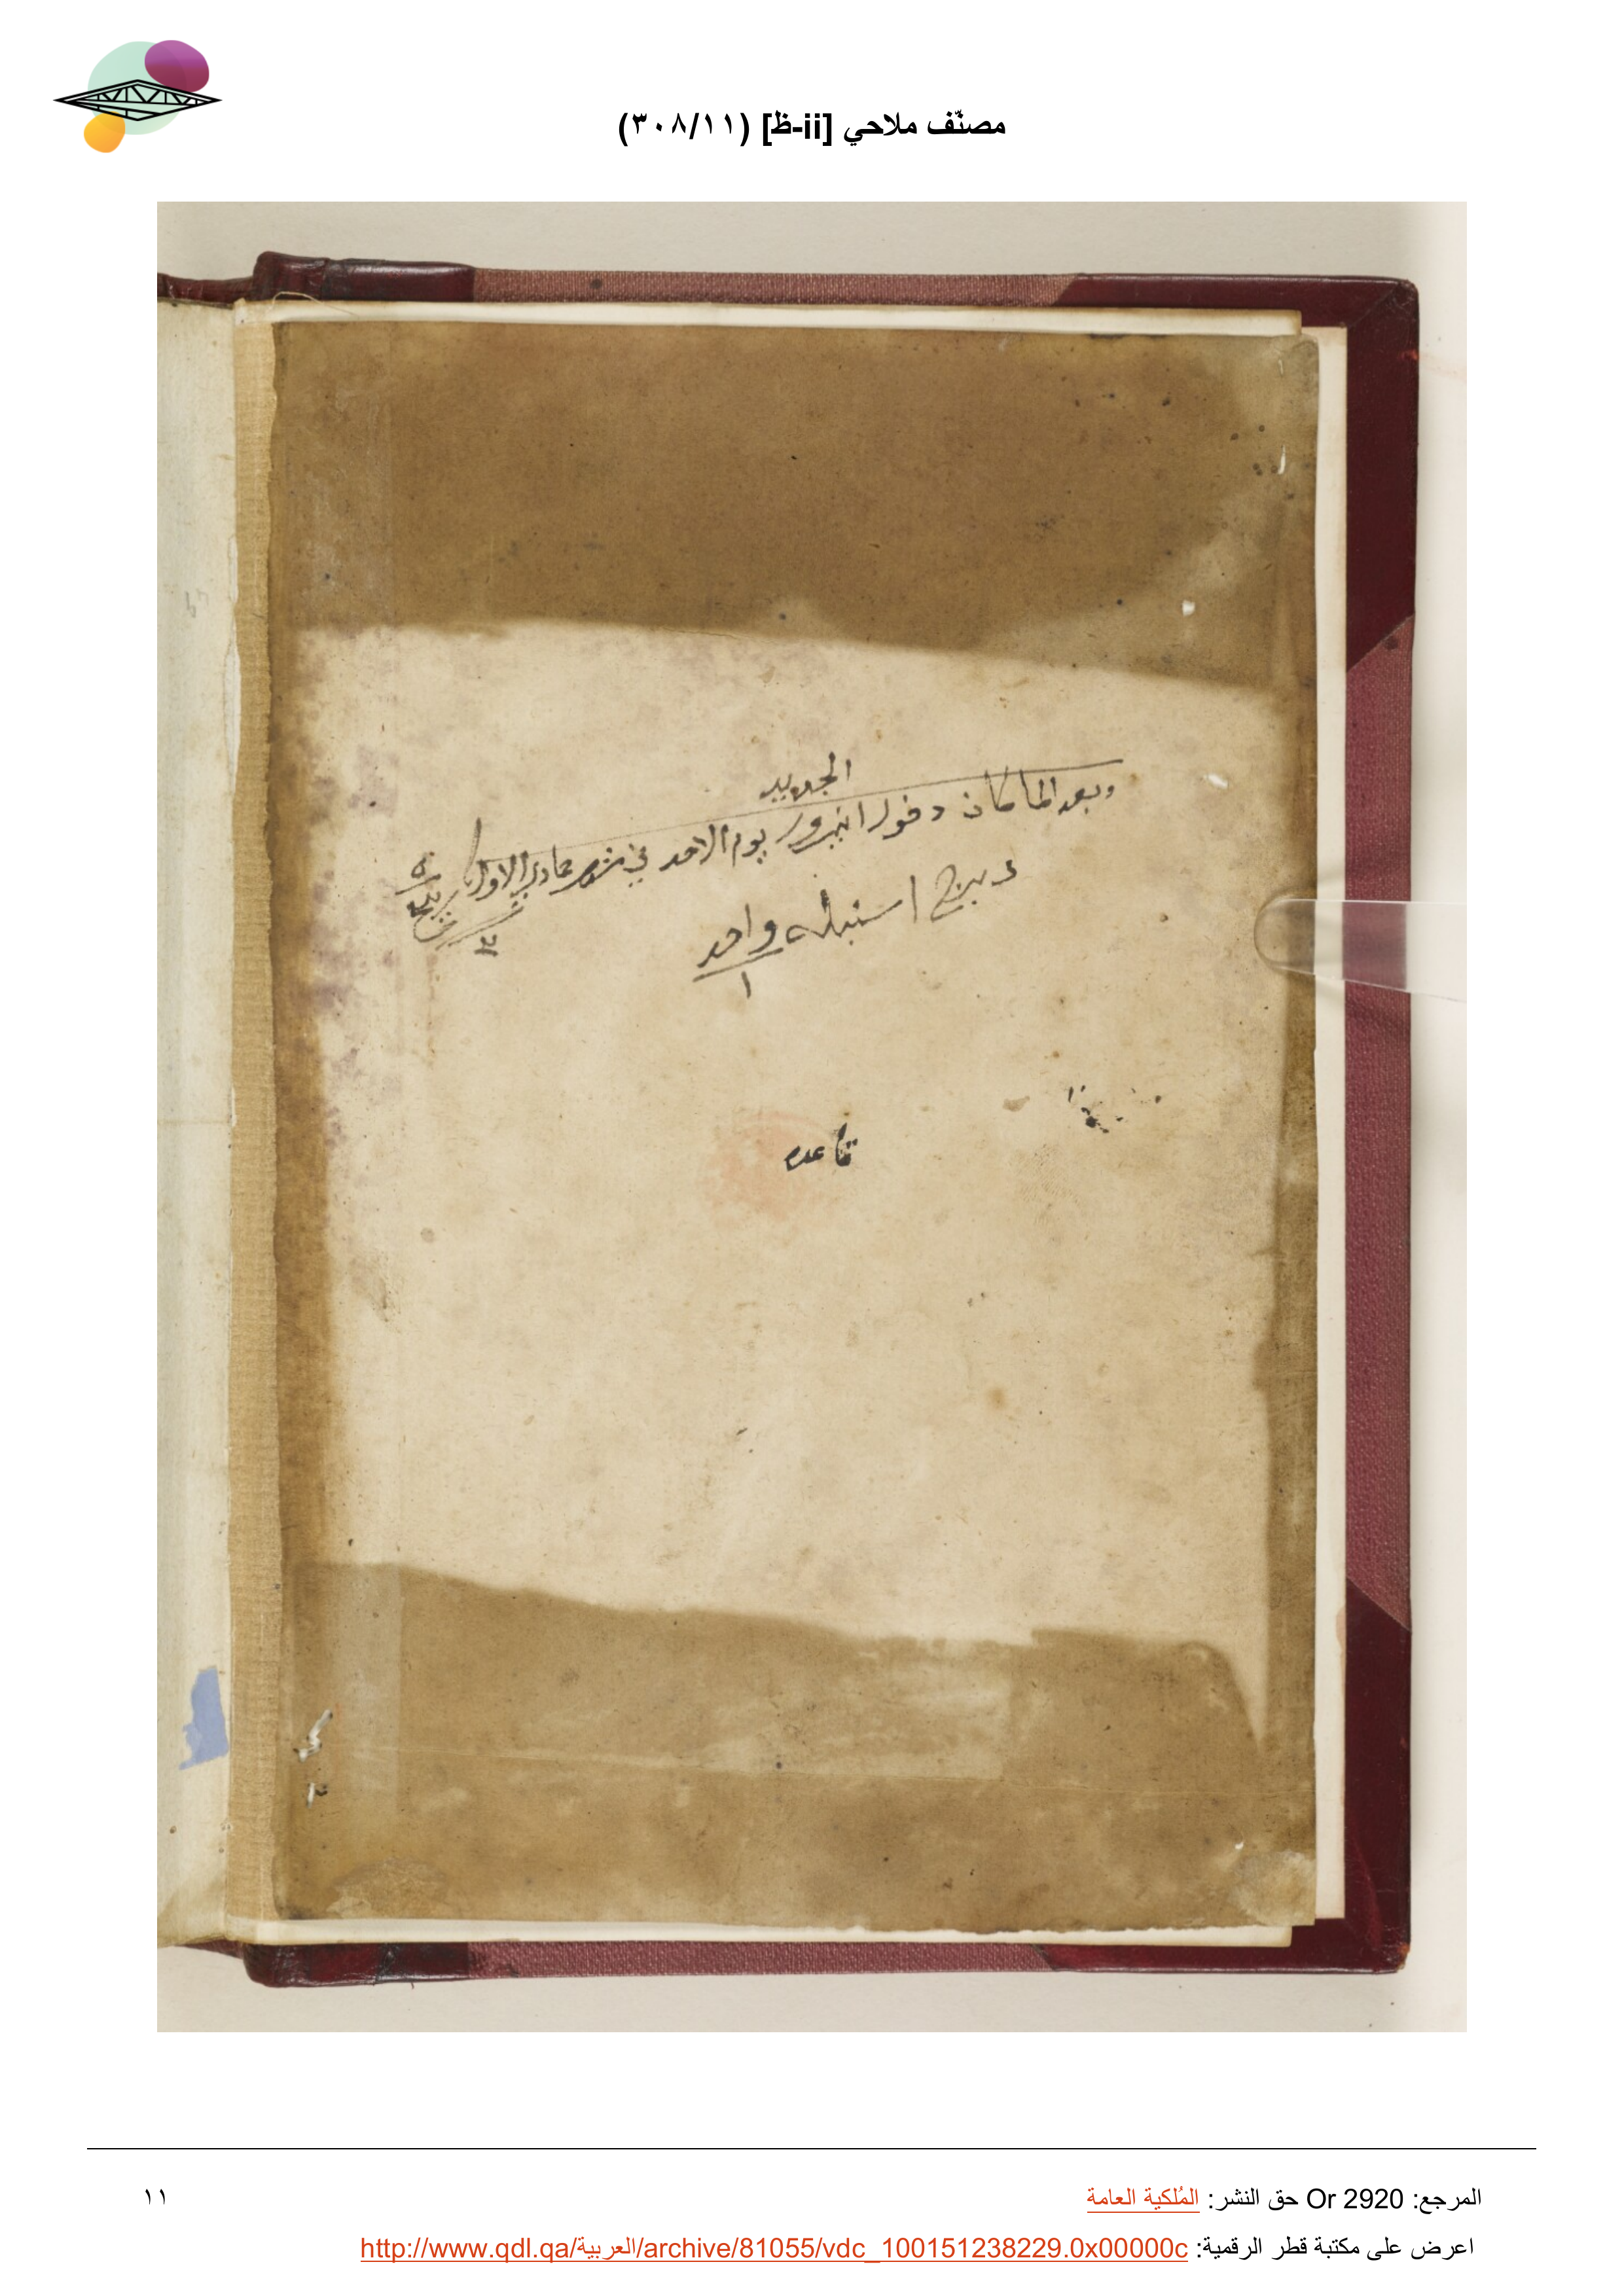 مصنّف ملاحي [ii-ظ] (٣٠٨/١١)
الجديد
وبعد لما كان دخول انيروز يوم الاحد في شهر جماد الاول
٣
واحد
١
قاعده
المرجع: Or 2920 حق النشر: المُلكية العامة
١١
اعرض على مكتبة قطر الرقمية: http://www.qdl.qa/العربية/archive/81055/vdc_100151238229.0x00000c